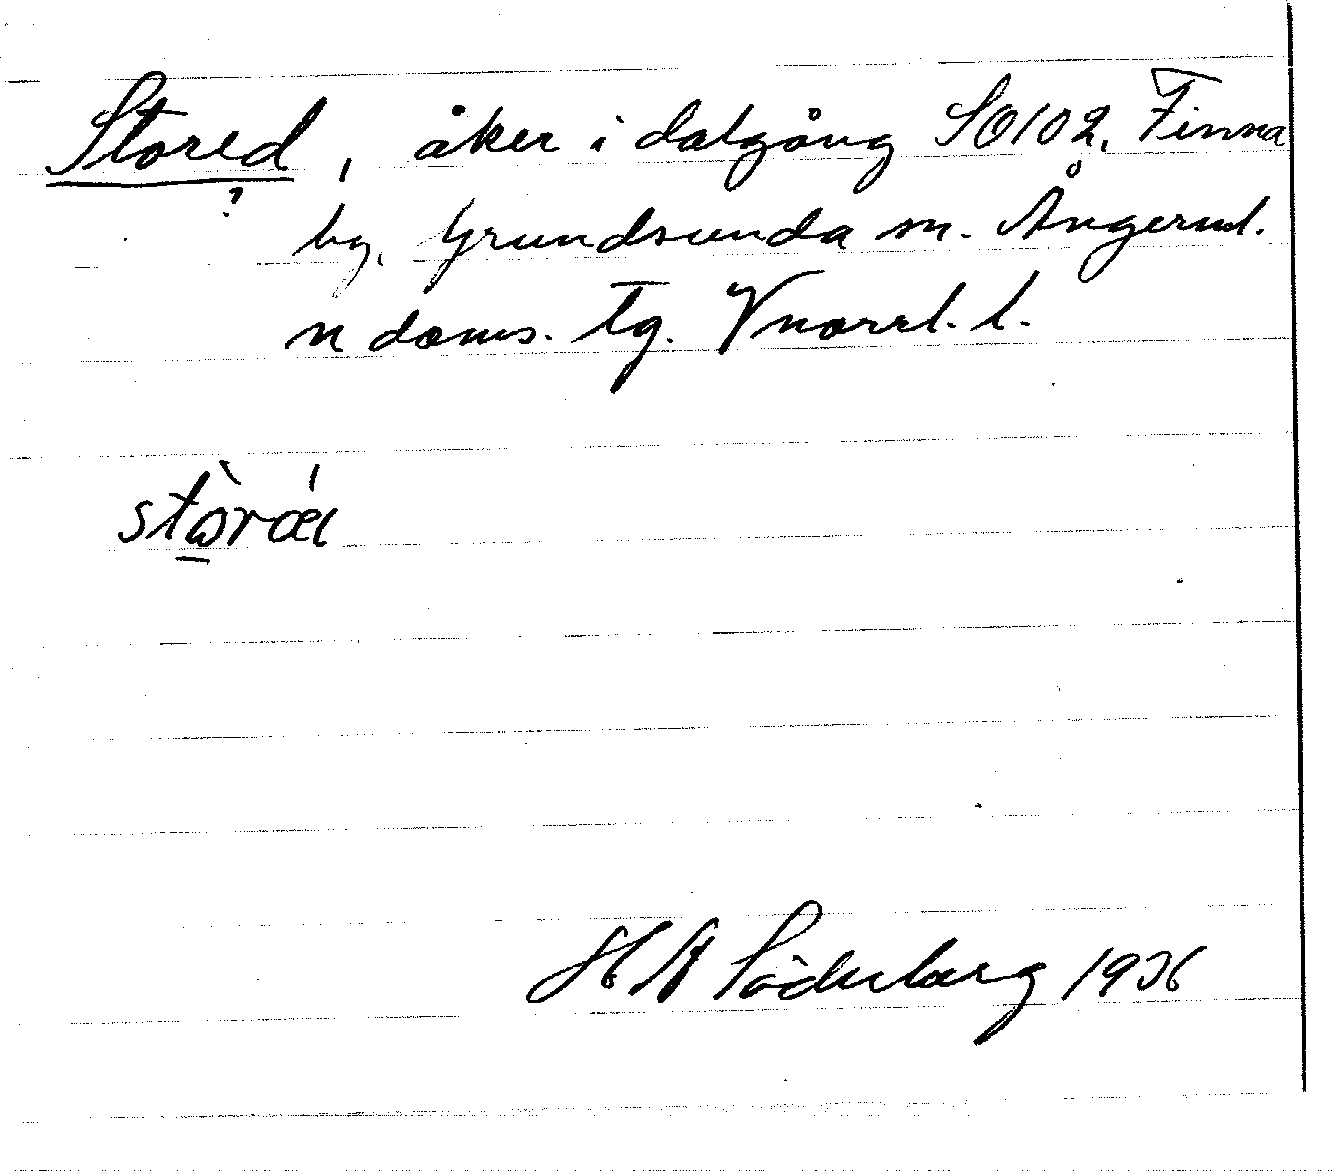 Stored, åker i dalgång SO102, Finna
?
by, Grundsunda sn. Ångerml.
n doms. Tg. Vnorrl. l.
stòrǽl
H A Söderberg 1936